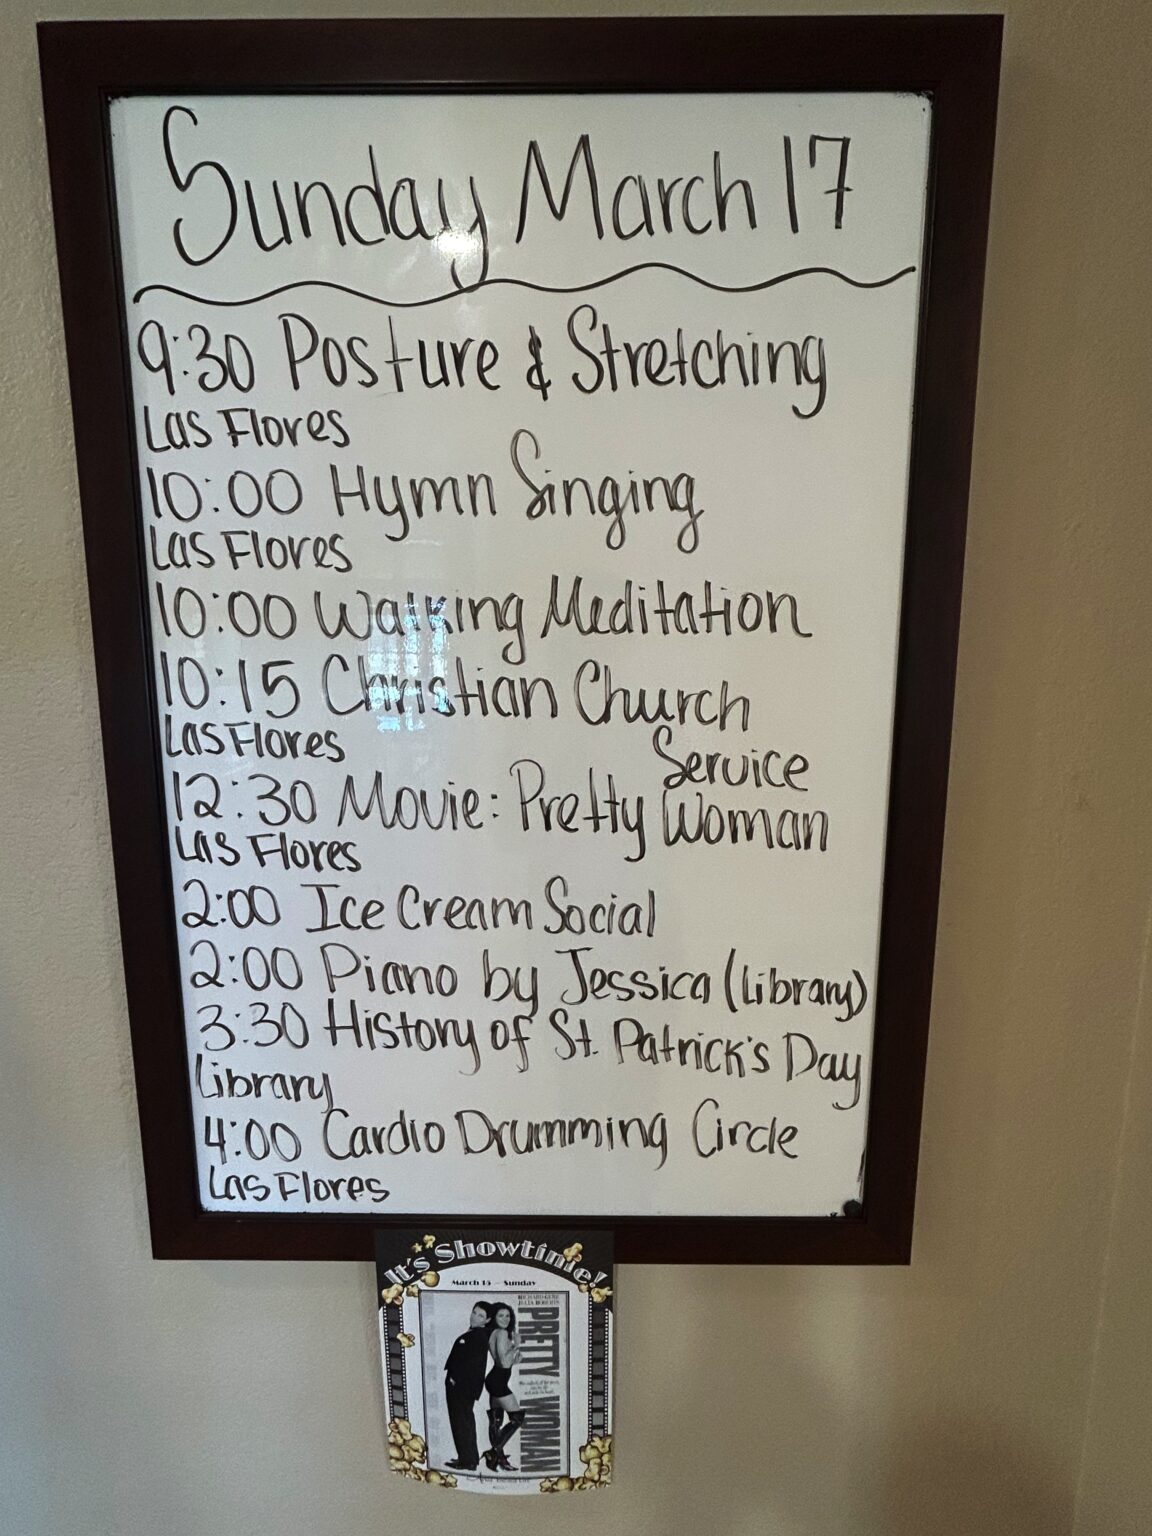 Sunday March 17
9:30 Posture & Stretching
Las Flores
10:00 Hymn Singing
Las Flores
10:00 Walking Meditation
10:15 Christian Church
Service
Las Flores
12:30 Movie: Pretty Woman
Las Flores
2:00 Ice Cream Social
2:00 Piano by Jessica (Library)
3:30 History of St. Patrick's Day
Library
4:00 Cardio Drumming Circle
Las Flores
It's Showtime!
March 15 — Sunday
RICHARD GERE
JULIA ROBERTS
PRETTY WOMAN